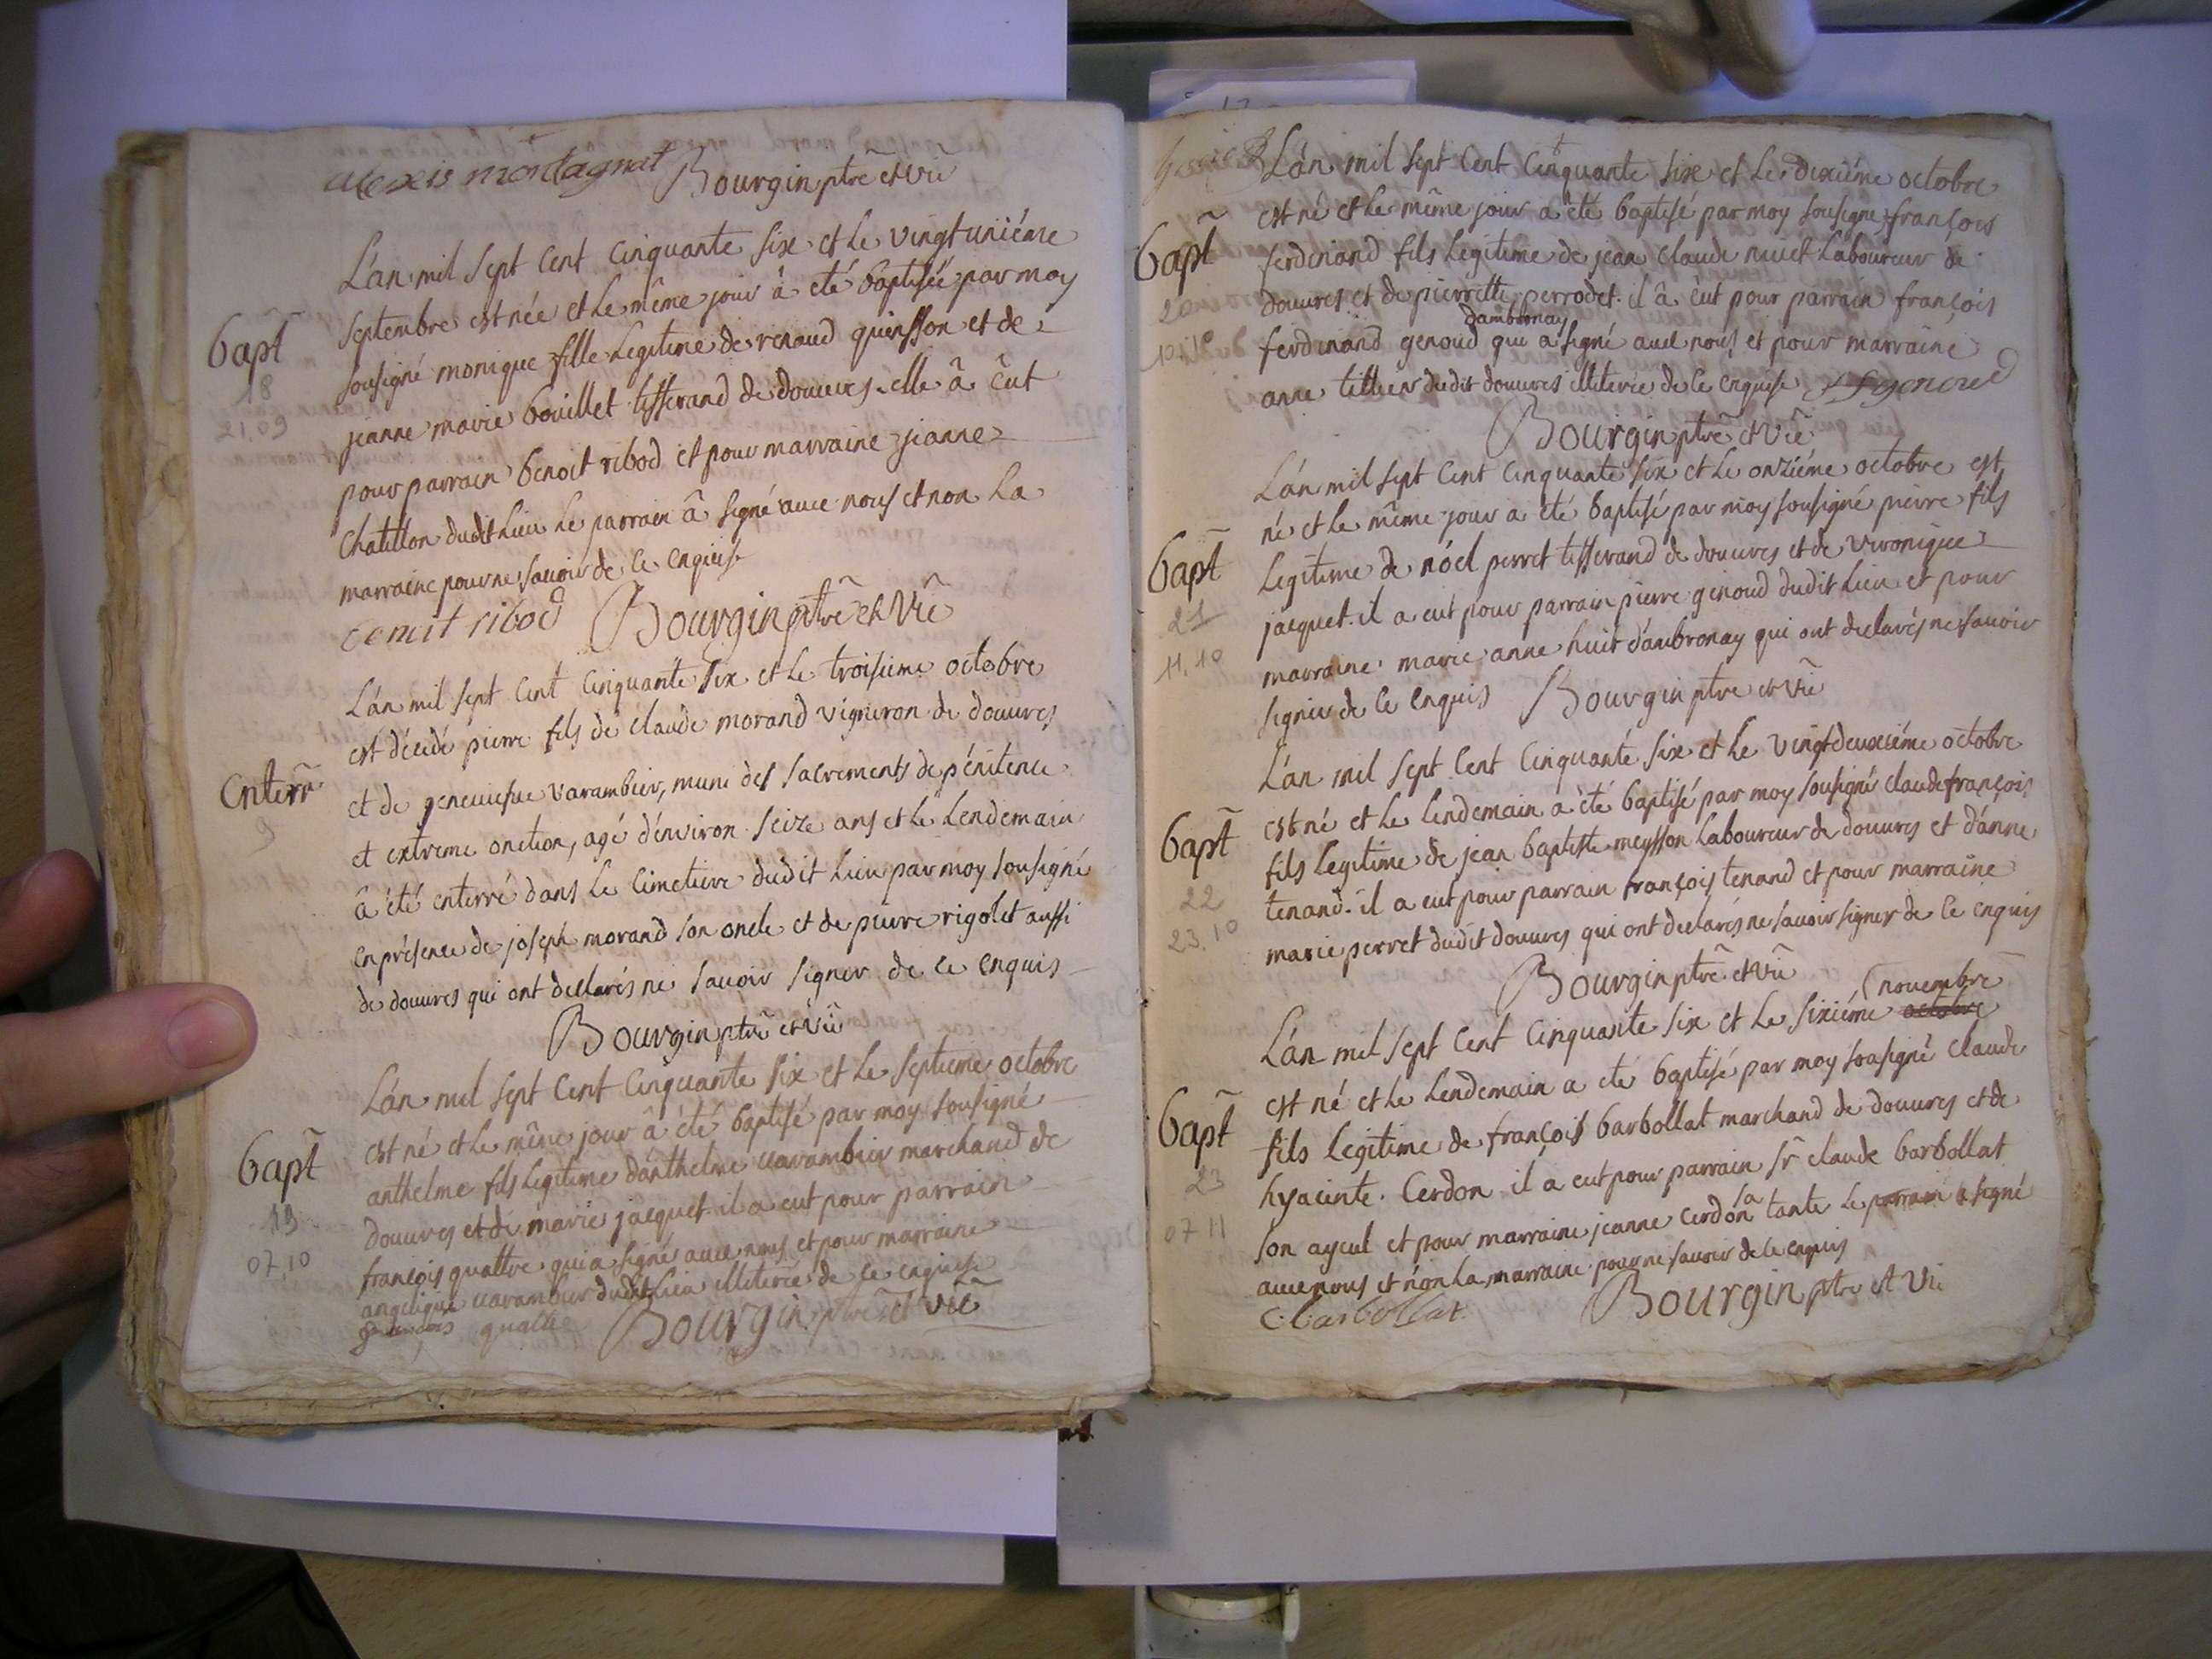 alexis montagnat Bourgin ptre et vic
L'an mil sept cent cinquante six et le vingt uniéme
septembre est née et le même jour â été baptisée par moy
Bapt
sousigné monique fille legitime de renaud quinsson et de
18
jeanne marie bouillet tisserand de douvres. elle â eut
21.09
pour parrain benoit ribod et pour marraine jeanne
chatillon dudit lieu le parrain â signé avec nous et non la
marraine pour ne savoir de ce enquise
benoit ribod Bourgin ptre et Vic
L'an mil sept cent cinquante six et le troisieme octobre
est décedé pierre fils de claude morand vigneron de douvres
Enterr
et de geneviefve varambier, muni des sacrements de pénitence
9
et extreme onction, agé d'environ seize ans et le lendemain
â été enterré dans le cimetiere dudit lieu par moy sousigné
en présence de joseph morand son oncle et de pierre rigolet aussi
de douvres qui ont declarés ne savoir signer de ce enquis
Bourgin ptre et vic
L'an mil sept cent cinquante six et le septieme octobre
est né et le même jour â été baptisé par moy sousigné
Bapt
anthelme fils legitime d'anthelme varambier marchand de
19
douvres et de marie jacquet. il a eut pour parrain
07.10
françois quattre qui a signé avec nous et pour marraine
angelique varambier dudit lieu illiterée de ce enquise
françois quattre Bourgin ptre et vic
L'an mil sept cent cinquante six et le dixiéme octobre
est né et le même jour a été baptisé par moy sousigné françois
Bapt
ferdinand fils legitime de jean claude nuiet laboureur de
20
douvres et de pierrette perrodet. il â eut pour parrain françois
10.10
dambronay
ferdinand genoud qui a signé avec nous et pour marraine
anne tillier dudit douvres illiterée de ce enquise f f genoud
Bourgin ptre et vic
L'an mil sept cent cinquante six et le onziéme octobre est
né et le même jour a été baptisé par moy sousigné pierre fils
Bapt
legitime de nöel perret tisserand de douvres et de veronique
21
jacquet. il a eut pour parrain pierre genoud dudit lieu et pour
11.10
marraine marie anne huit d'ambronay qui ont declarés ne savoir
signer de ce enquis Bourgin ptre et vic
L'an mil sept cent cinquante six et le vingt deuxiéme octobre
est né et le lendemain a été baptisé par moy sousigné claude françois
Bapt
fils legitime de jean baptiste meysson laboureur de douvres et d'anne
22
tenand. il a eut pour parrain françois tenand et pour marraine
23.10
marie perret dudit douvres qui ont declarés ne savoir signer de ce enquis
Bourgin ptre et vic
novembre
L'an mil sept cent cinquante six et le sixiéme octobre
est né et le lendemain a été baptisé par moy sousigné claude
Bapt
fils legitime de françois barbollat marchand de douvres et de
23
hyacinte Cerdon il a eut pour parrain sr claude barbollat
07 11
son ayeul et pour marraine jeanne cerdon sa tante le parrain a signé
avec nous et non la marraine pour ne savoir de ce enquis
C. barbollat Bourgin ptre et Vic